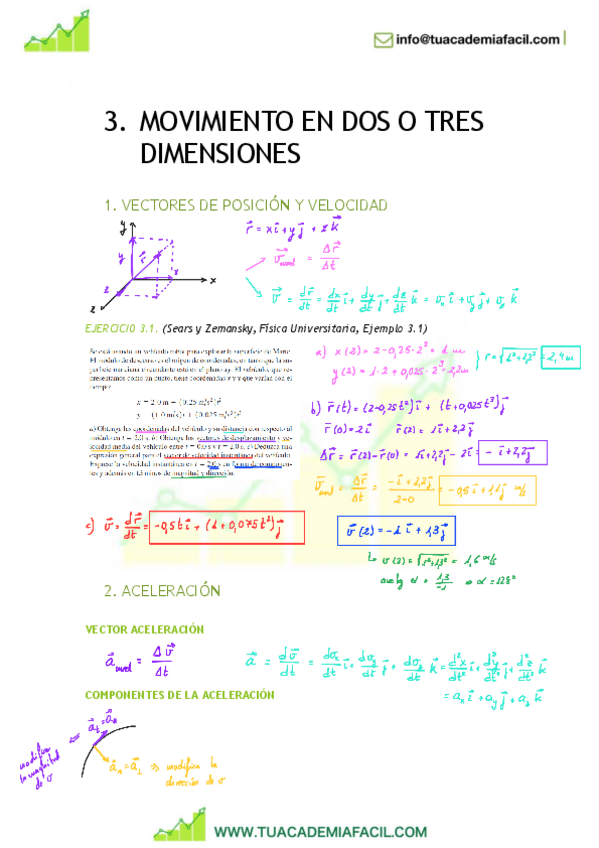 info@tuacademiafacil.com
3. MOVIMIENTO EN DOS O TRES
DIMENSIONES
1. VECTORES DE POSICIÓN Y VELOCIDAD
y
r⃗ = x i⃗ + y j⃗ + z k⃗
y r⃗ x
v⃗med = Δr⃗/Δt
z x
z
v⃗ = dr⃗/dt = dx/dt i⃗ + dy/dt j⃗ + dz/dt k⃗ = vx i⃗ + vy j⃗ + vz k⃗
EJERCICIO 3.1. (Sears y Zemansky, Física Universitaria, Ejemplo 3.1)
Se está usando un vehículo robot para explorar la superficie de Marte.
El módulo de descenso es el origen de coordenadas, en tanto que la su-
perficie marciana circundante está en el plano xy. El vehículo, que re-
presentamos como un punto, tiene coordenadas x y y que varían con el
tiempo:
x = 2.0 m − (0.25 m/s²)t²
y = (1.0 m/s)t + (0.025 m/s³)t³
a) Obtenga las coordenadas del vehículo y su distancia con respecto al
módulo en t = 2.0 s. b) Obtenga los vectores de desplazamiento y ve-
locidad media del vehículo entre t = 0.0 s y t = 2.0 s. c) Deduzca una
expresión general para el vector de velocidad instantánea del vehículo.
Exprese la velocidad instantánea en t = 2.0 s en forma de componen-
tes y además en términos de magnitud y dirección.
a) x(2) = 2-0,25·2² = 1 m
y(2) = 1·2 + 0,025·2³ = 2,2m
r = √1²+2,2² = 2,4 m
b) r⃗(t) = (2-0,25t²) i⃗ + (t+0,025t³) j⃗
r⃗(0) = 2 i⃗ r⃗(2) = 1 i⃗ + 2,2 j⃗
Δr⃗ = r⃗(2) - r⃗(0) = 1 i⃗ + 2,2 j⃗ - 2 i⃗ = - i⃗ + 2,2 j⃗
v⃗med = Δr⃗/Δt = (- i⃗ + 2,2 j⃗)/(2-0) = -0,5 i⃗ + 1,1 j⃗ m/s
c) v⃗ = dr⃗/dt = -0,5t i⃗ + (1 + 0,075t²) j⃗
v⃗(2) = -1 i⃗ + 1,3 j⃗
↳ v(2) = √1²+1,3² = 1,6 m/s
1,3/-1
2. ACELERACIÓN
VECTOR ACELERACIÓN
a⃗med = Δv⃗/Δt
a⃗ = dv⃗/dt = dvx/dt i⃗ + dvy/dt j⃗ + dvz/dt k⃗ = d²x/dt² i⃗ + d²y/dt² j⃗ + d²z/dt² k⃗
= ax i⃗ + ay j⃗ + az k⃗
COMPONENTES DE LA ACELERACIÓN
modifica
la magnitud
de v
a⃗n = a⃗⊥ ⇒ modifica la
dirección de v
WWW.TUACADEMIAFACIL.COM